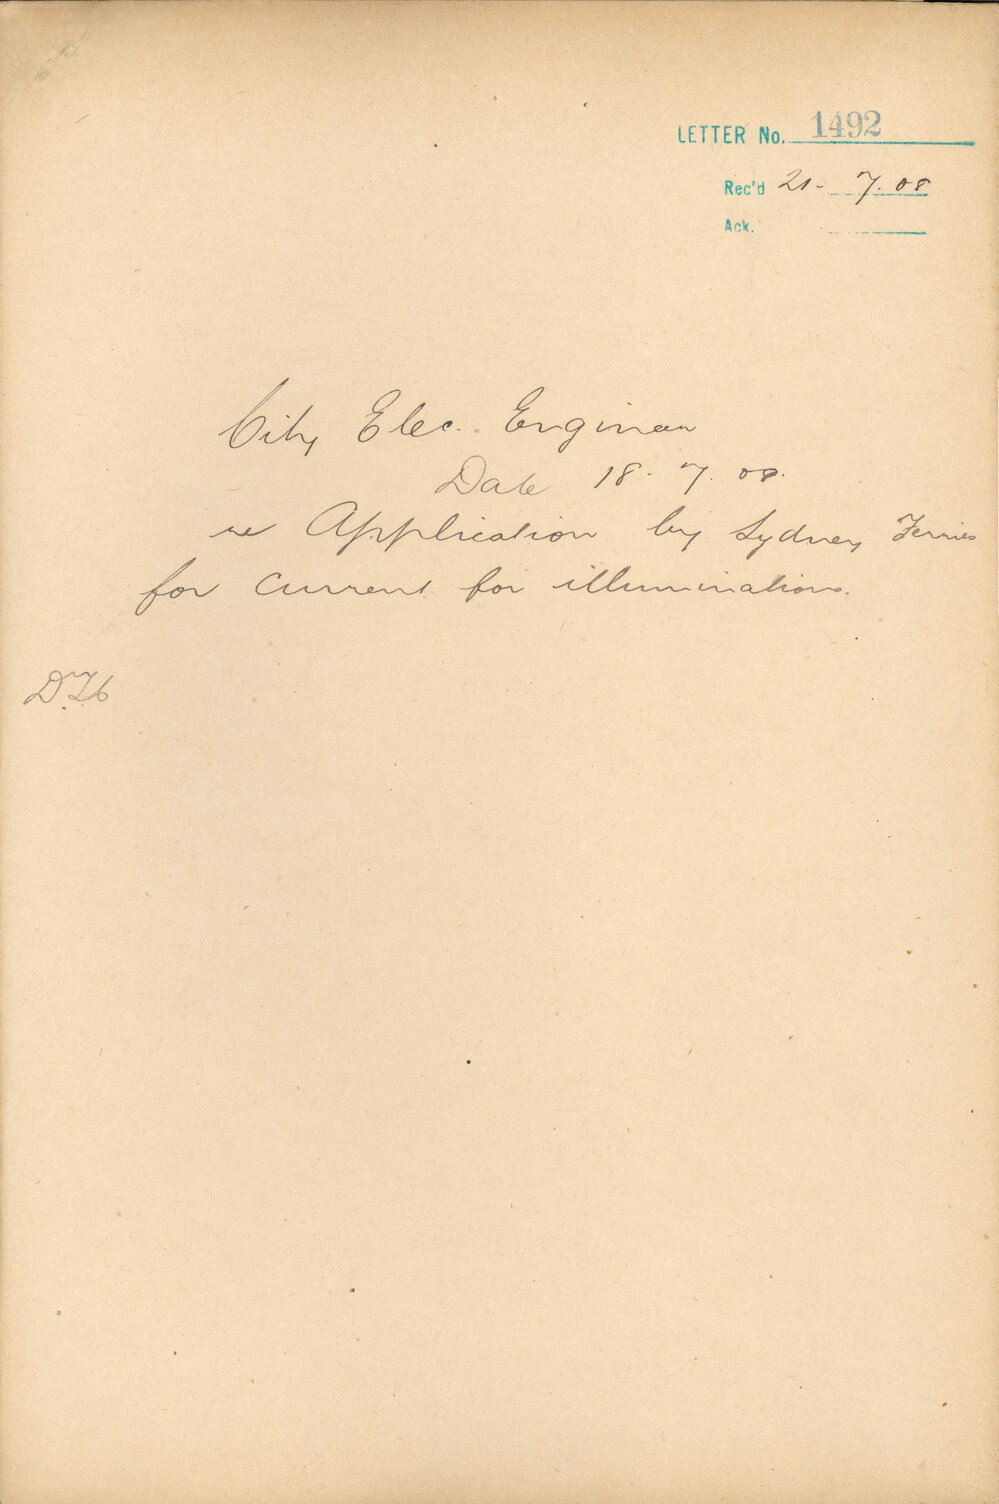 LETTER No. 1492
Rec'd 21- 7. 08
Ack.
City Elec. Engineer
Date 18. 7. 08.
re Application by Sydney Ferries
for current for illuminations.